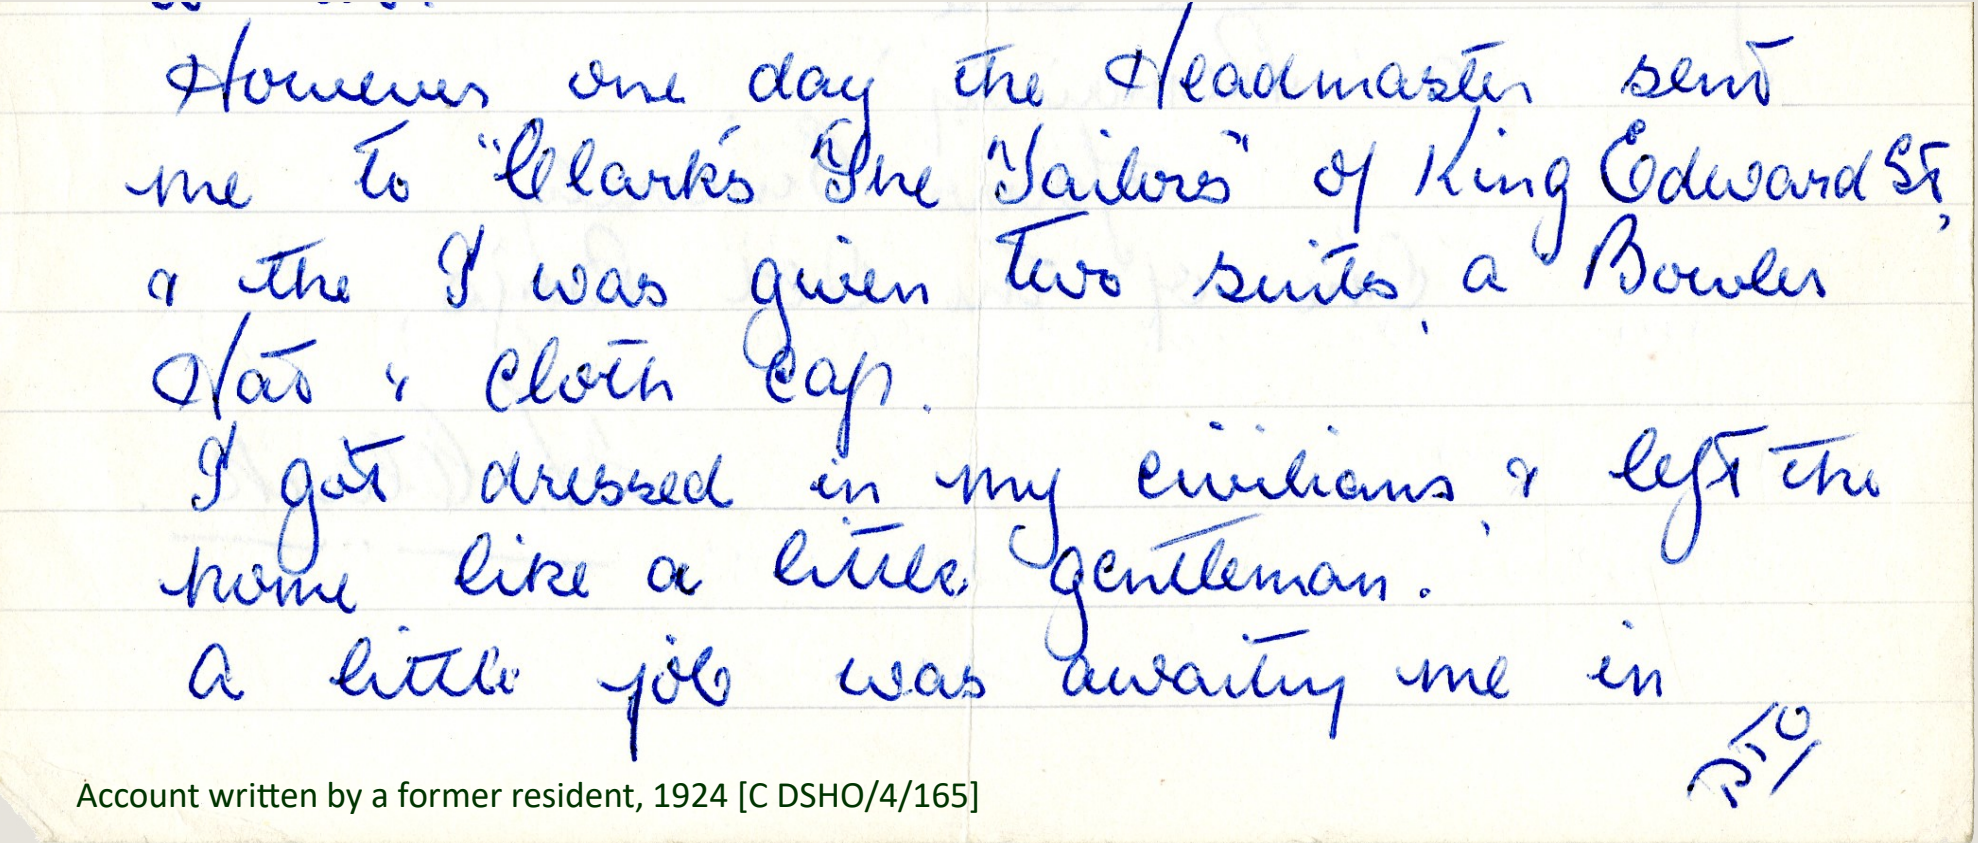 However one day the Headmaster sent
me to "Clark's "The "Tailors" of King Edward St,
& the I was given two suits, a Bowler
Hat & Cloth Cap.
I got dressed in my civilians, & left the
home like a little gentleman.
A little job was awaiting me in
PTO
Account written by a former resident, 1924 [C DSHO/4/165]